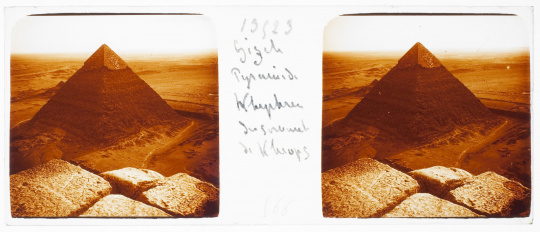 13523
Gizeh
Pyramide
Khephren
du sommet
de Kheops